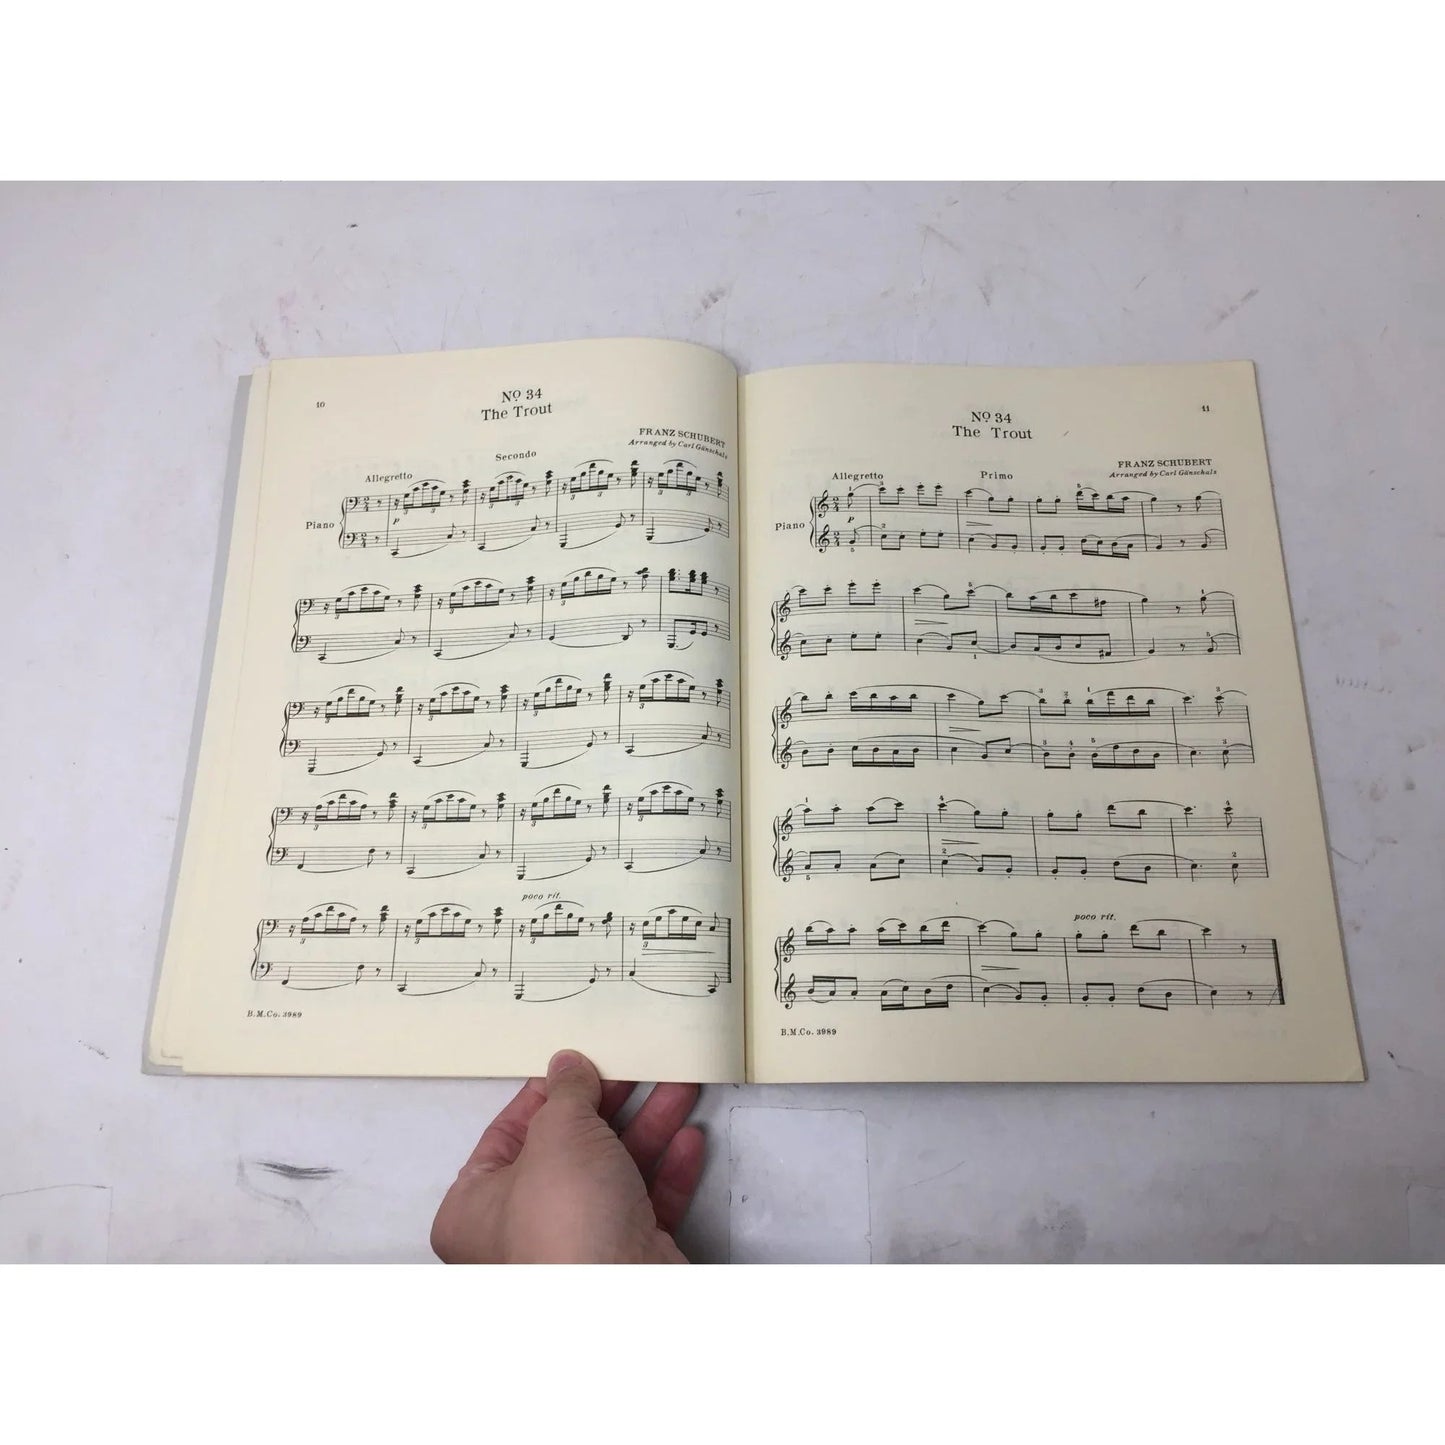 10
Nọ 34
The Trout
FRANZ SCHUBERT
Arranged by Carl Gänschals
Secondo
Allegretto
Piano
p
poco rit.
B.M.Co. 3989
11
Nọ 34
The Trout
FRANZ SCHUBERT
Arranged by Carl Gänschals
Allegretto
Primo
Piano
p
poco rit.
B.M.Co. 3989